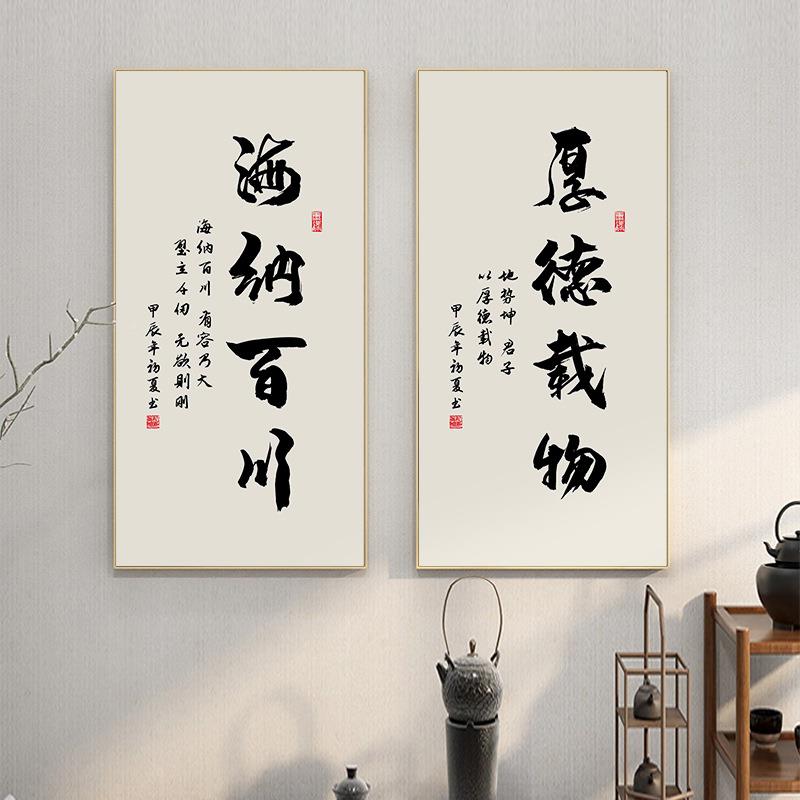 厚德载物
地势坤 君子
以厚德载物
甲辰年初夏书
海纳百川
海纳百川 有容乃大
壁立千仞 无欲则刚
甲辰年初夏书